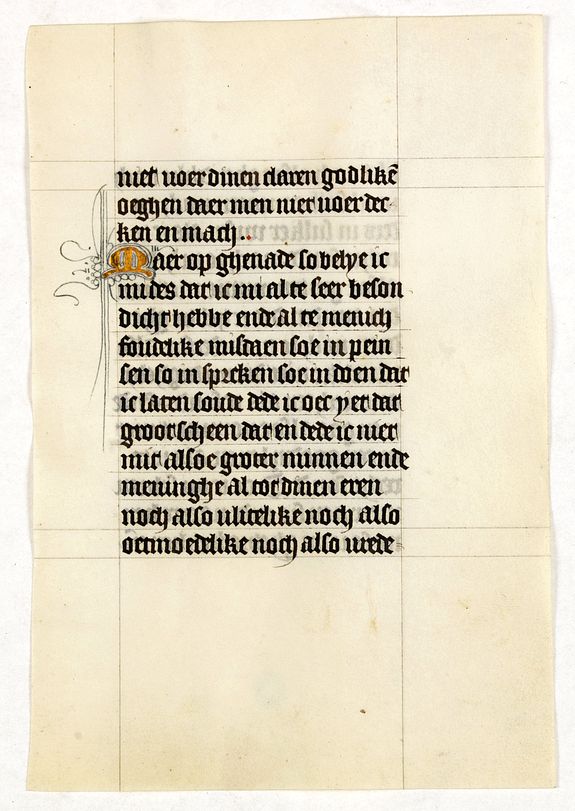 niet voer dinen claren godlikē
oeghen daer men niet voer dec
ken en mach..
Maer op ghenade so belye ic
mi des dat ic mi al te seer beson
dicht hebbe ende al te menich
foudelike misdaen soe in pein
sen so in spreken soe in doen dat
ic laten soude dede ic oec yet dat
groot scheen dat en dede ic niet
mit alsoe groter minnen ende
meninghe al tot dinen eren
noch also vlitelike noch also
oetmoedelike noch also vrede